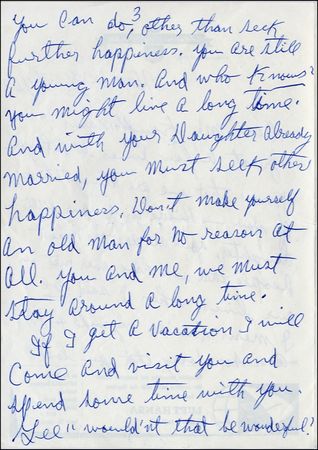 You can do,³ other than seek
further happiness. You are still
a young man. And who knows?
You might live a long time.
And with your Daughter already
married, you must seek other
happiness. Don't make yourself
an old man for no reason at
all. You and me, we must
stay around a long time.
If I get a vacation I will
come and visit you and
spend some time with you.
Gee" wouldn't that be wonderful?